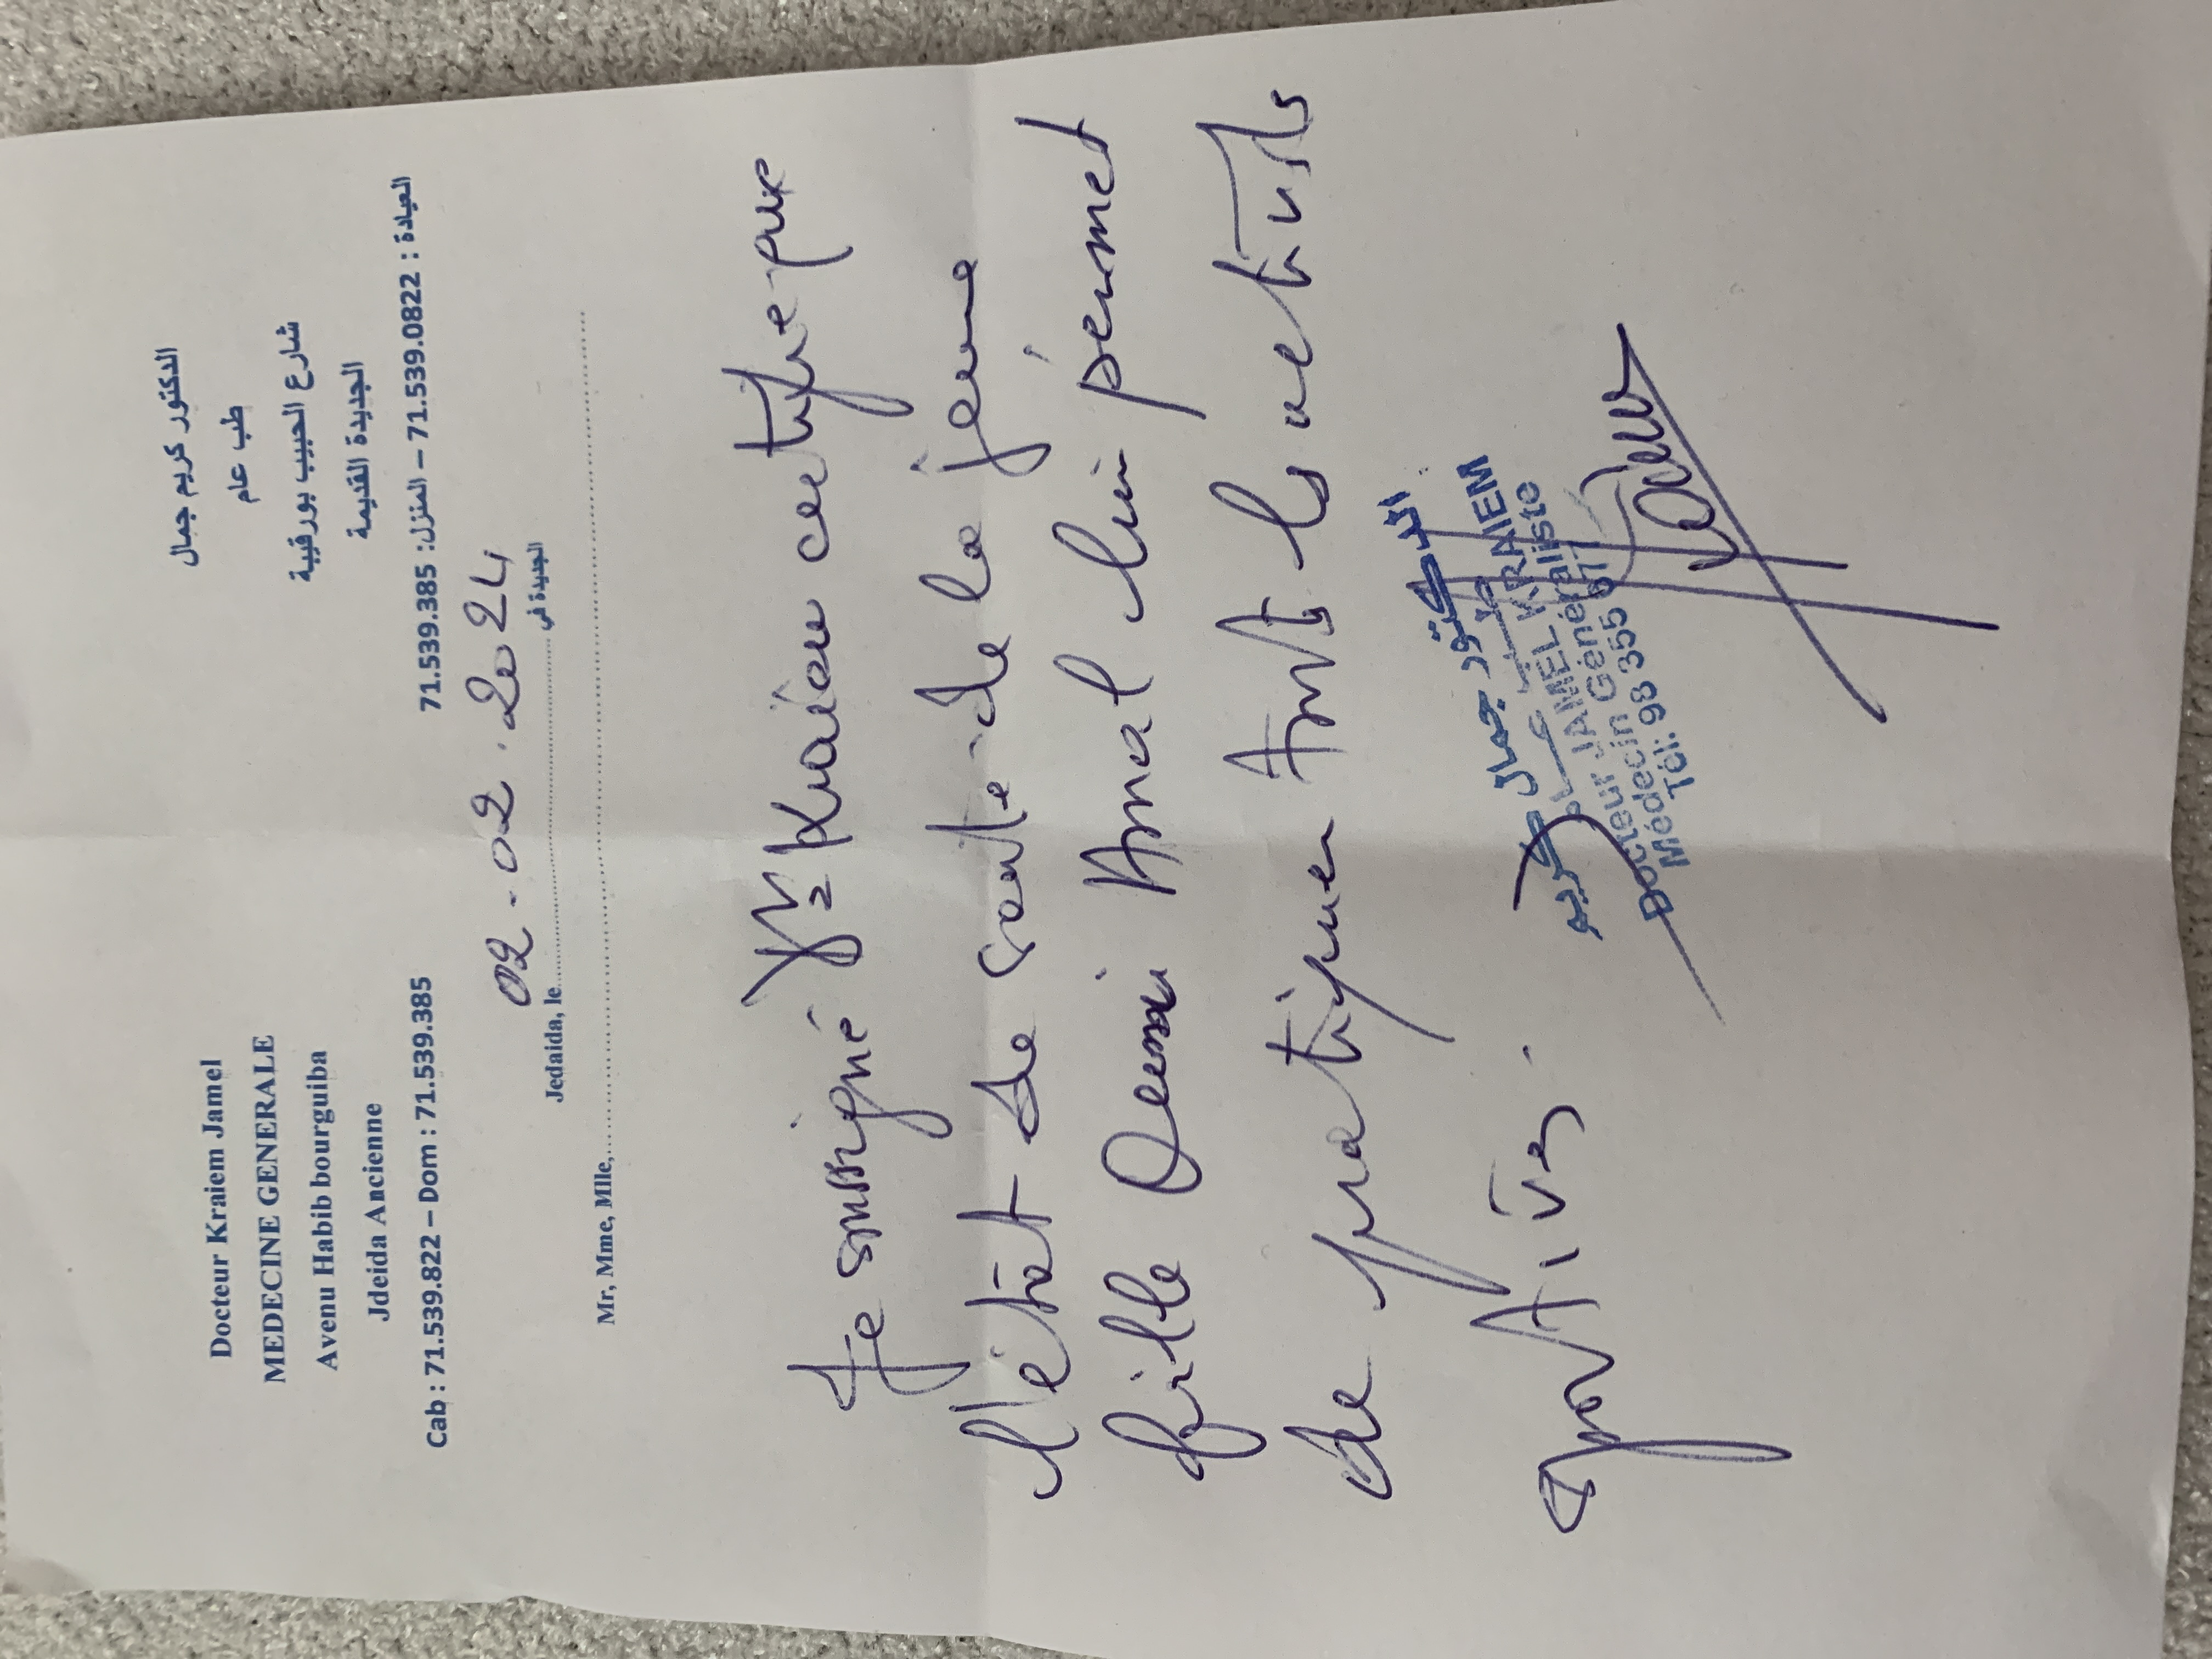 Docteur Kraiem Jamel
MEDECINE GENERALE
Avenu Habib bourguiba
Jdeida Ancienne
Cab : 71.539.822 – Dom : 71.539.385
الدكتور كريم جمال
طب عام
شارع الحبيب بورقيبة
الجديدة القديمة
العيادة : 71.539.0822 – المنزل: 71.539.385
Jedaida, le 02.02.2024 الجديدة في
Mr, Mme, Mlle,
Je soussigné Dr Kraiem certifie que
l'état de santé de la jeune
fille Amal lui permet
de pratiquer toutes les activités
sportives.
الدكتور جمال كريم
Docteur JAMEL KRAIEM
Médecin Généraliste
Tél: 98 355